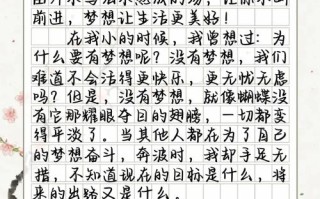 前进，梦想让生活更美好！
在我小的时候，我曾想过：为
什么要有梦想呢？没有梦想，我们
难道不会活得更快乐，更无忧无虑
吗？但是，没有梦想，就像蝴蝶没
有它那耀眼夺目的翅膀，一切都变
得平淡了。当其他人都在为了自己
的梦想奋斗，奔波时，我却手足无
措，不知道现在的目标是什么，将
来的出路又是什么。